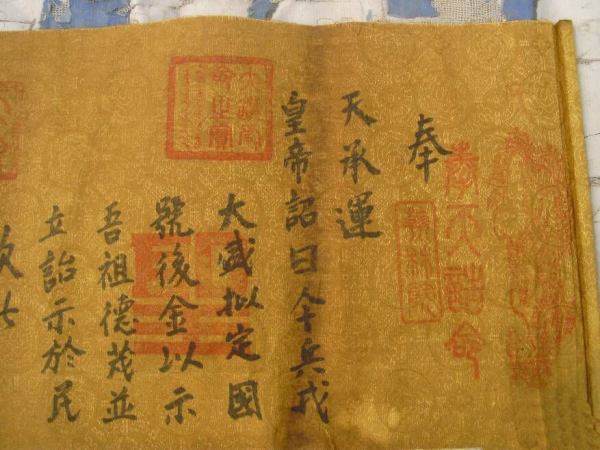 奉天誥命
奉
天承運
皇帝詔曰今兵戎
大盛拟定國
號後金以示
吾祖德茂並
立詒示於民
欽此